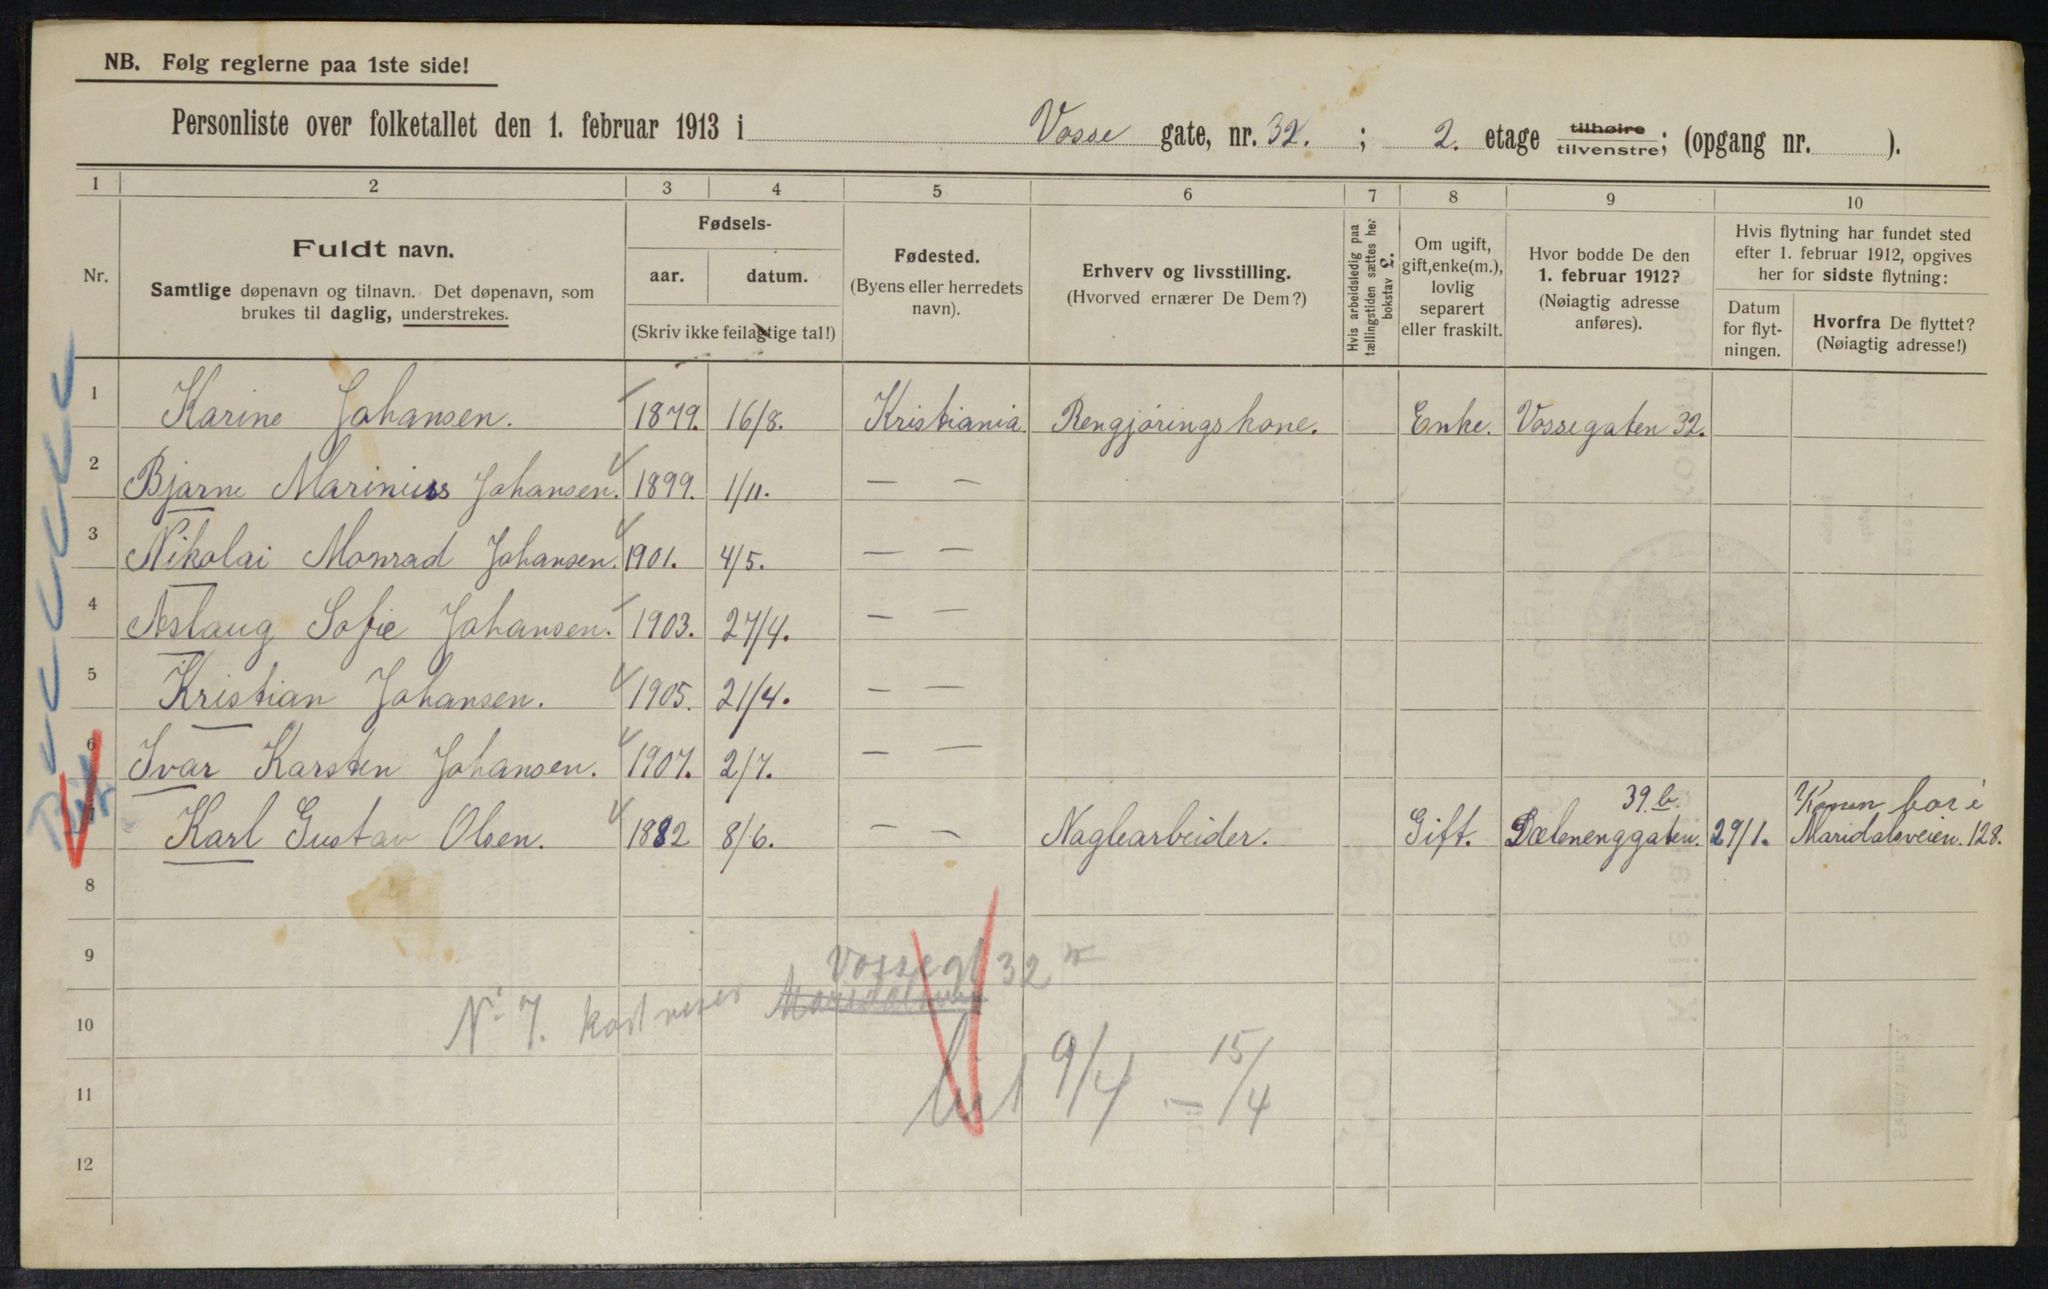 NB. Følg reglerne paa 1ste side!
Personliste over folketallet den 1. februar 1913 i Vosse gate, nr. 32. ; 2. etage tilhøire tilvenstre; (opgang nr. ).
1 2 3 4 5 6 7 8 9 10
Nr.
Fuldt navn.
Samtlige døpenavn og tilnavn. Det døpenavn, som
brukes til daglig, understrekes.
Fødsels-
aar. datum.
(Skriv ikke feilagtige tal!)
Fødested.
(Byens eller herredets
navn).
Erhverv og livsstilling.
(Hvorved ernærer De Dem?)
Hvis arbeidsledig paa
tællingstiden sættes her
bokstav L.
Om ugift,
gift, enke(m.),
lovlig
separert
eller fraskilt.
Hvor bodde De den
1. februar 1912?
(Nøiagtig adresse
anføres).
Hvis flytning har fundet sted
efter 1. februar 1912, opgives
her for sidste flytning:
Datum
for flyt-
ningen.
Hvorfra De flyttet?
(Nøiagtig adresse!)
1 Karine Johansen. 1879. 16/8. Kristiania. Rengjøringskone. Enke. Vossegaten 32.
2 Bjarne Marinius Johansen. 1899. 1/11. — —
3 Nikolai Monrad Johansen. 1901. 4/5. — —
4 Aslaug Sofie Johansen. 1903. 27/4. — —
5 Kristian Johansen. 1905. 21/4. — —
6 Ivar Karsten Johansen. 1907. 2/7. — —
39.b. Konen bor i
7 Karl Gustav Olsen. 1882 8/6. — — Naglearbeider. Gift. Dælenenggaten. 29/1. Maridalsveien. 128.
8
9
Vossegt 32
10
N° 7.
11
9/4 – 15/4
12